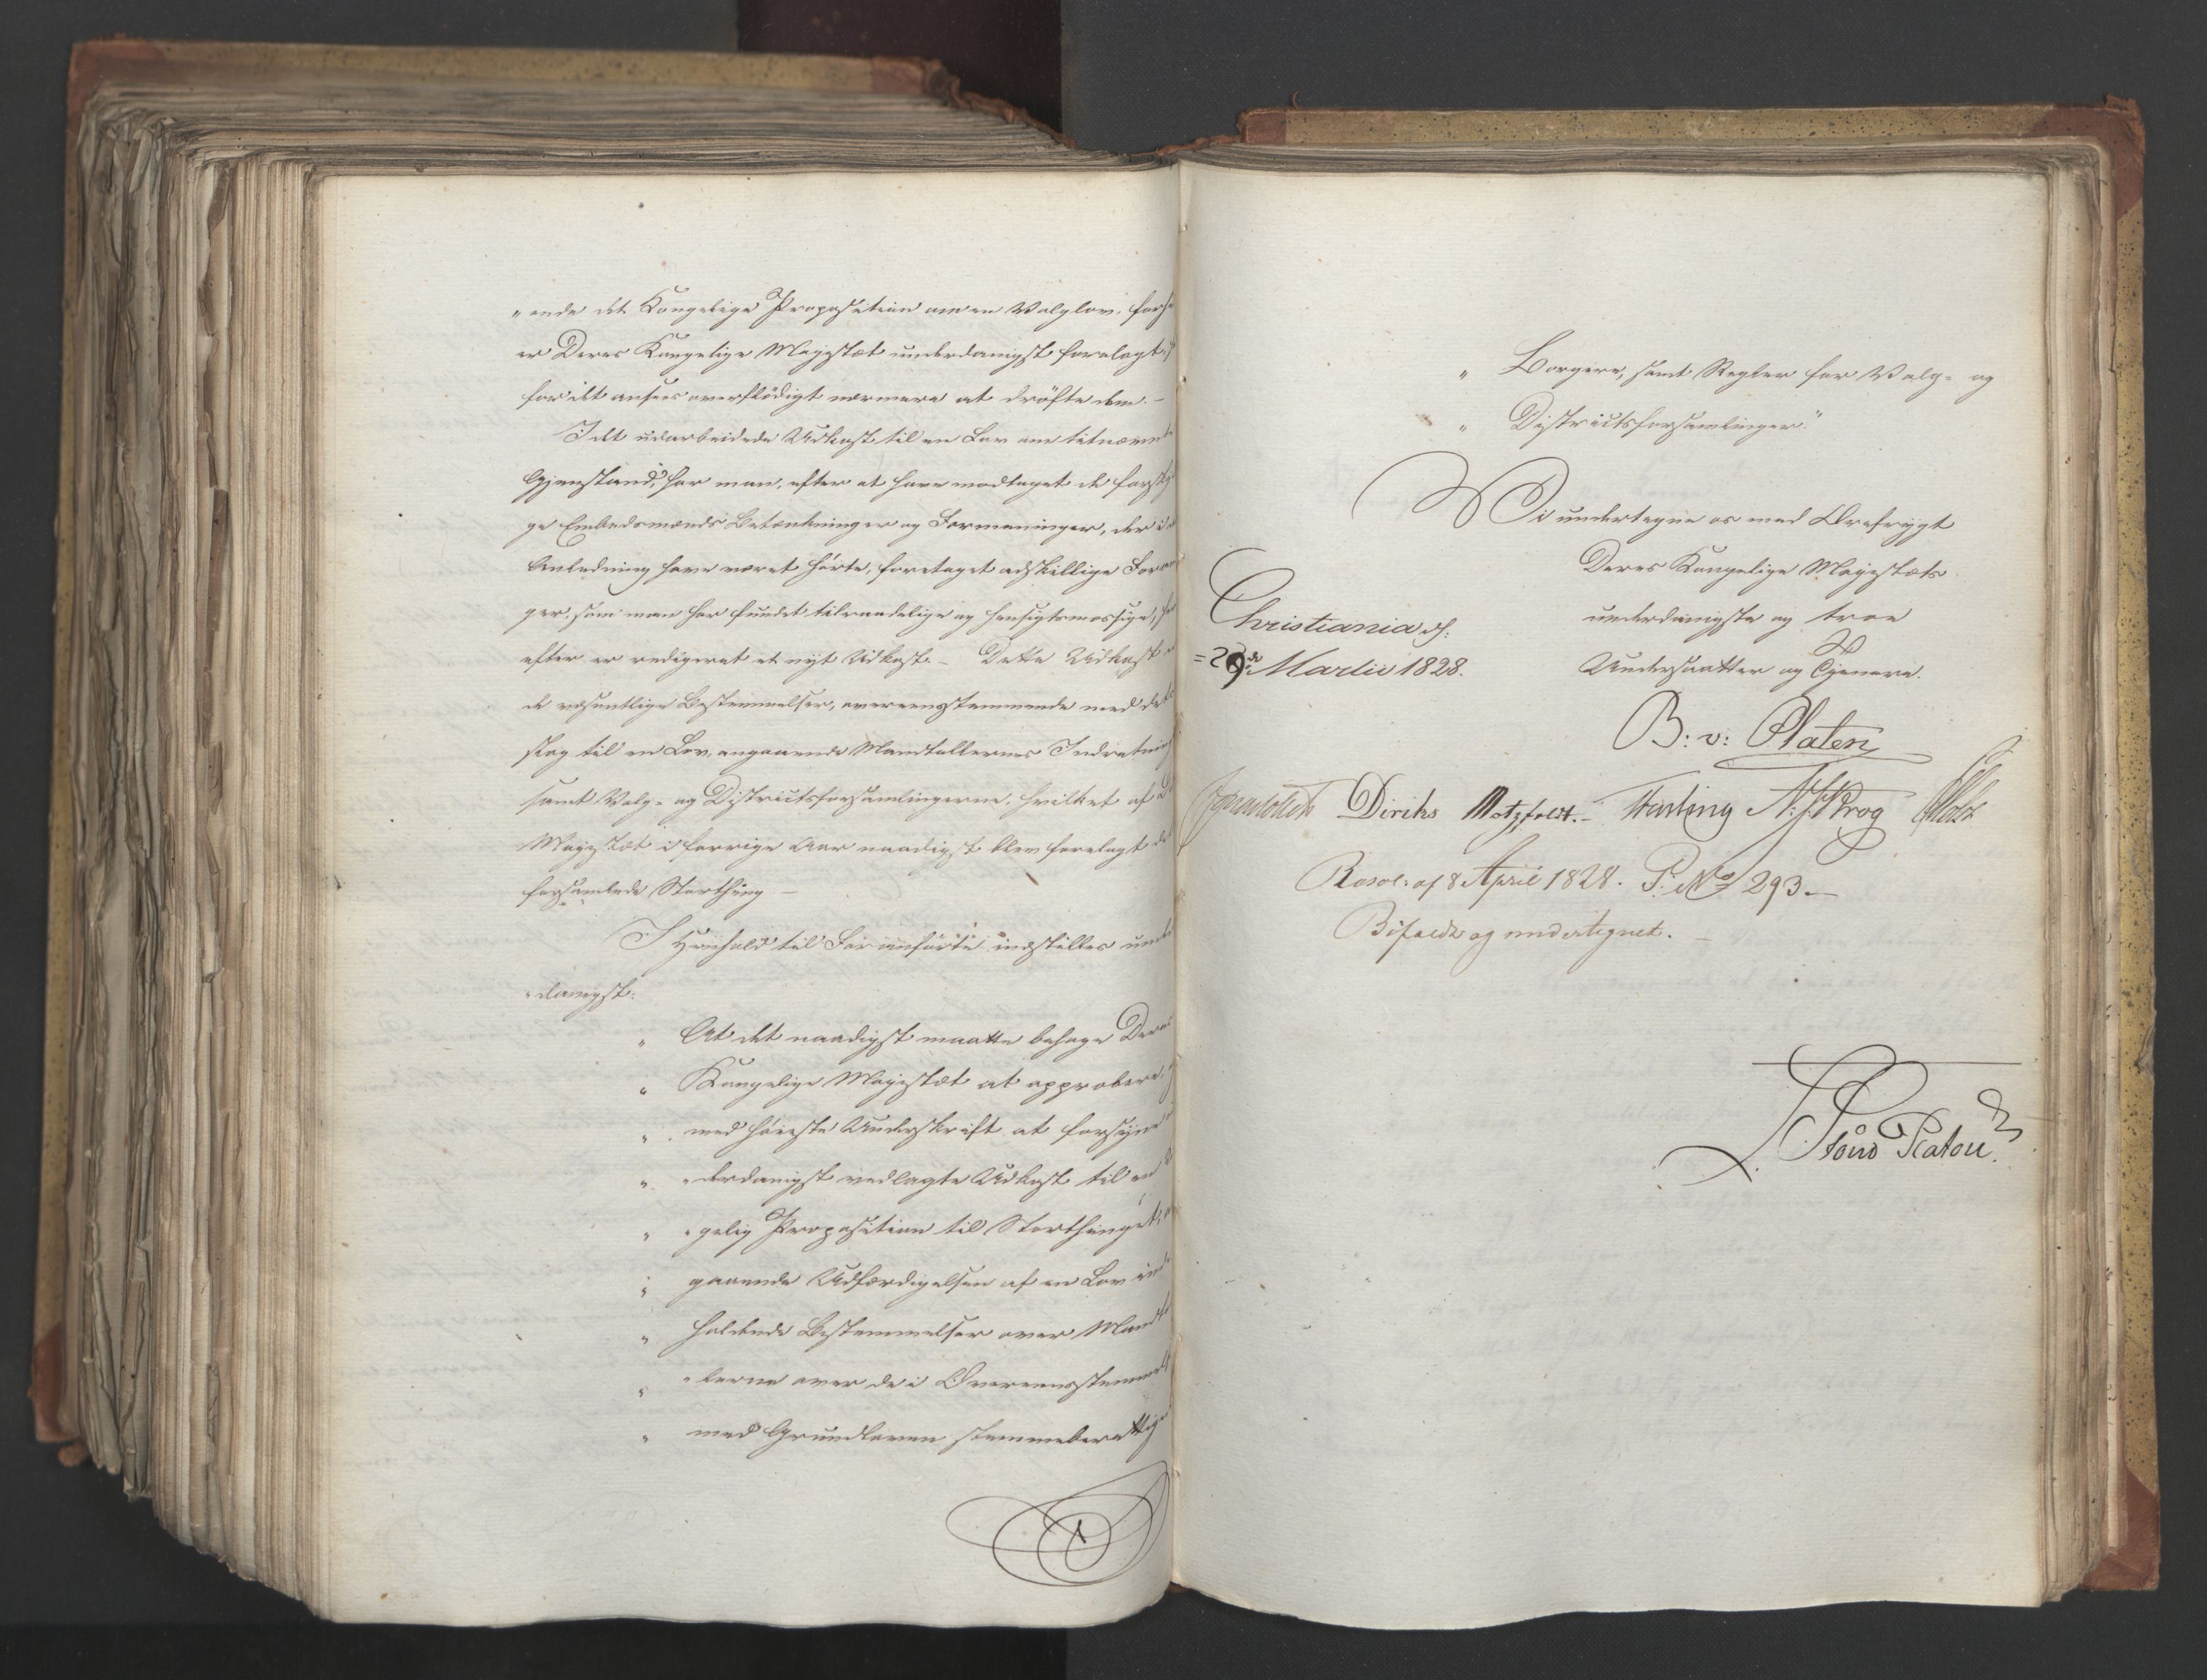 „ende det Kongelige Proposition om en Valglov, for
er Deres Kongelige Majestæt underdanigst forelagt,
for ikke ansees overflødigt nærmere at drøfte dem. –
I det udarbeidede Udkast til en Lov om sidstnævnte
Gjenstand, har man, efter at have modtaget de forskjelli
ge Embedsmænds Betænkninger og Formeninger, der i
Anledning have været hørte, foretaget adskillige Foran
ger, som man har fundet tilraadelige og hensigtsmæssige,
efter er redigeret et nyt Udkast. – Dette Udkast
de væsentlige Bestemmelser, overeensstemmende med det
slag til en Lov, angaaende Mandtallernes Indretning
samt Valg- og Districtsforsamlingerne, hvilket af
Majestæt i forrige Aar naadigst blev forelagt
forsamlede Storthing –
I Henhold til Foranførte indstilles under
-danigst:
„ At det naadigst maatte behage Deres
„ Kongelige Majestæt at approbere
„ med høieste Underskrift at forsyne
„ -derdanigst vedlagte Udkast til en
„ -gelig Proposition til Storthinget,
„ gaaende Udfærdigelsen af en Lov ind
„ holdende Bestemmelser over Mandtal
„ -lerne over de i Overeensstemmelse
„ med Grundloven stemmeberettige
„ Borgere, samt Regler for Valg- og
„ Districtsforsamlinger."
Vi undertegne os med Ærefrygt
Deres Kongelige Majestæts
underdanigste og troe
Undersaatter og Tjenere.
Christiania d:
=29de Martii 1828.
B: v: Platen
Diriks Motzfeldt. – N. J. Krog
Resol: af 8 April 1828. P. No 293. –
Bifaldt og undertegnet. –
Platou